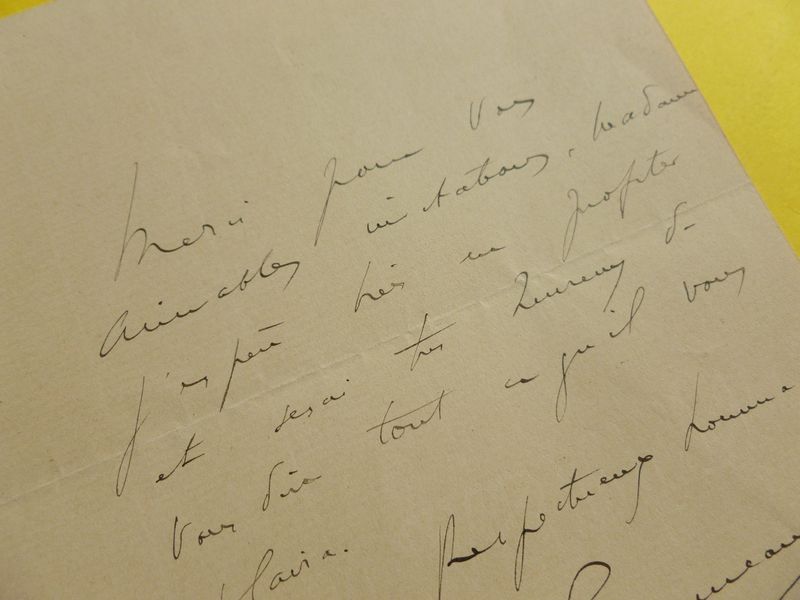 Merci pour vos
aimables invitations, Madame
J'espère très en profiter
et serai très heureux de
vous dire tout ce qu'il vous
plaira. Respectueux homma